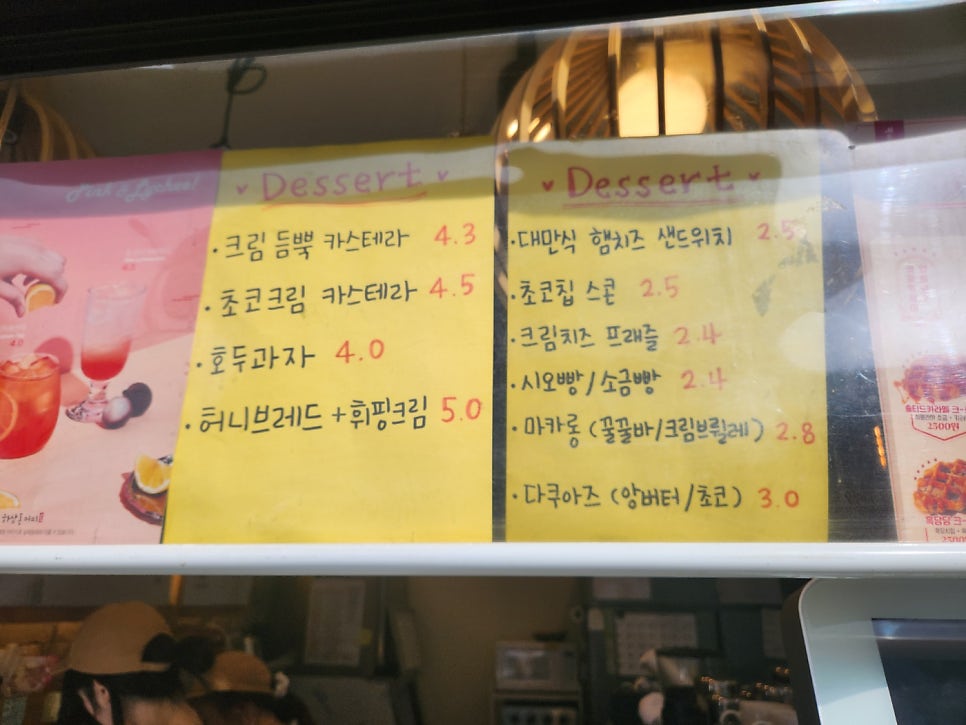 Pink & Lychee!
♥ Dessert ♥
· 크림 듬뿍 카스테라 4.3
· 초코크림 카스테라 4.5
· 호두과자 4.0
· 허니브레드 + 휘핑크림 5.0
♥ Dessert ♥
· 대만식 햄치즈 샌드위치 2.5
· 초코칩 스콘 2.5
· 크림치즈 프래즐 2.4
· 시오빵/소금빵 2.4
· 마카롱 (꿀꿀바/크림브륄레) 2.8
· 다쿠아즈 (앙버터/초코) 3.0
솔티드카라멜 크
2500원